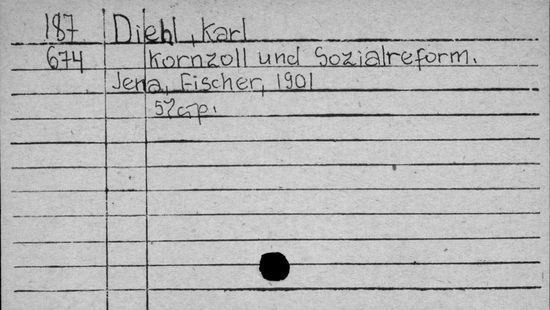 187 Diehl, Karl
674 Kornzoll und Sozialreform.
Jena, Fischer, 1901